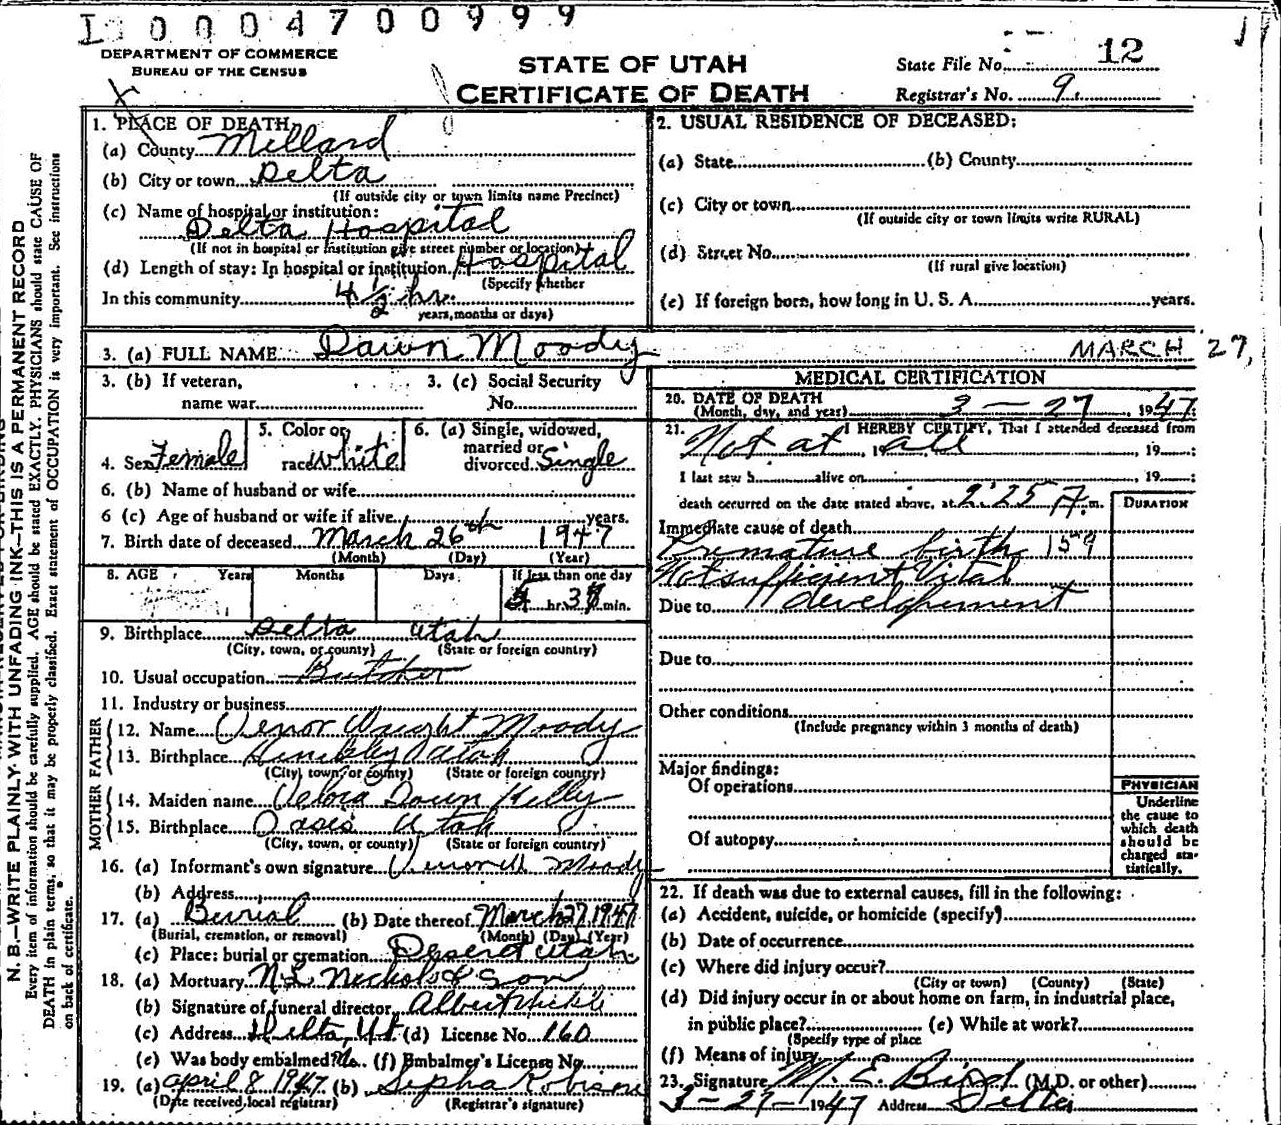 L 0004700999
DEPARTMENT OF COMMERCE
BUREAU OF THE CENSUS
STATE OF UTAH
CERTIFICATE OF DEATH
State File No. 12
Registrar's No. 9
N. B.—WRITE PLAINLY WITH UNFADING INK—THIS IS A PERMANENT RECORD
Every item of information should be carefully supplied. AGE should be stated EXACTLY. PHYSICIANS should state CAUSE OF
DEATH in plain terms, so that it may be properly classified. Exact statement of OCCUPATION is very important. See instructions
on back of certificate.
1. PLACE OF DEATH
(a) County Millard
(b) City or town Delta
(If outside city or town limits name Precinct)
(c) Name of hospital or institution:
Delta Hospital
(If not in hospital or institution give street number or location)
(d) Length of stay: In hospital or institution Hospital
(Specify whether
In this community 4 1/2 hr.
years, months or days)
2. USUAL RESIDENCE OF DECEASED:
(a) State (b) County
(c) City or town
(If outside city or town limits write RURAL)
(d) Street No.
(If rural give location)
(e) If foreign born, how long in U. S. A. years.
3. (a) FULL NAME Dawn Moody MARCH 27,
3. (b) If veteran, 3. (c) Social Security
name war No.
4. Sex Female 5. Color or race white 6. (a) Single, widowed, married or divorced Single
6. (b) Name of husband or wife
6 (c) Age of husband or wife if alive years.
7. Birth date of deceased March 26th 1947
(Month) (Day) (Year)
8. AGE Years Months Days If less than one day
hr. min.
9. Birthplace Delta Utah
(City, town, or county) (State or foreign country)
10. Usual occupation Butcher
11. Industry or business
FATHER
12. Name Venor Waught Moody
13. Birthplace Hinckley Utah
(City, town, or county) (State or foreign country)
MOTHER
14. Maiden name Velora Dawn Kelly
15. Birthplace Oasis Utah
(City, town, or county) (State or foreign country)
16. (a) Informant's own signature Moody
(b) Address
17. (a) Burial (b) Date thereof March 27 1947
(Burial, cremation, or removal) (Month) (Day) (Year)
(c) Place: burial or cremation Deseret Utah
18. (a) Mortuary N L Nichols & Son
(b) Signature of funeral director
(c) Address Delta, Ut (d) License No. 160
(e) Was body embalmed? No (f) Embalmer's License No.
19. (a) april 8 1947 (b) Sepha Robison
(Date received, local registrar) (Registrar's signature)
MEDICAL CERTIFICATION
20. DATE OF DEATH
(Month, day, and year) 3-27, 1947;
21. I HEREBY CERTIFY, That I attended deceased from
Not at, 19 all, 19 ;
I last saw h alive on, 19 ;
death occurred on the date stated above, at 2:25 A. m.
DURATION
Immediate cause of death
Premature birth 159
Not sufficient Vital
Due to developement
Due to
Other conditions
(Include pregnancy within 3 months of death)
Major findings:
Of operations
Of autopsy
PHYSICIAN
Underline
the cause to
which death
should be
charged sta-
tistically.
22. If death was due to external causes, fill in the following:
(a) Accident, suicide, or homicide (specify)
(b) Date of occurrence
(c) Where did injury occur?
(City or town) (County) (State)
(d) Did injury occur in or about home on farm, in industrial place,
in public place? (e) While at work?
(Specify type of place
(f) Means of injury
23. Signature M. E. Bird (M.D. or other)
3-27-1947 Address Delta